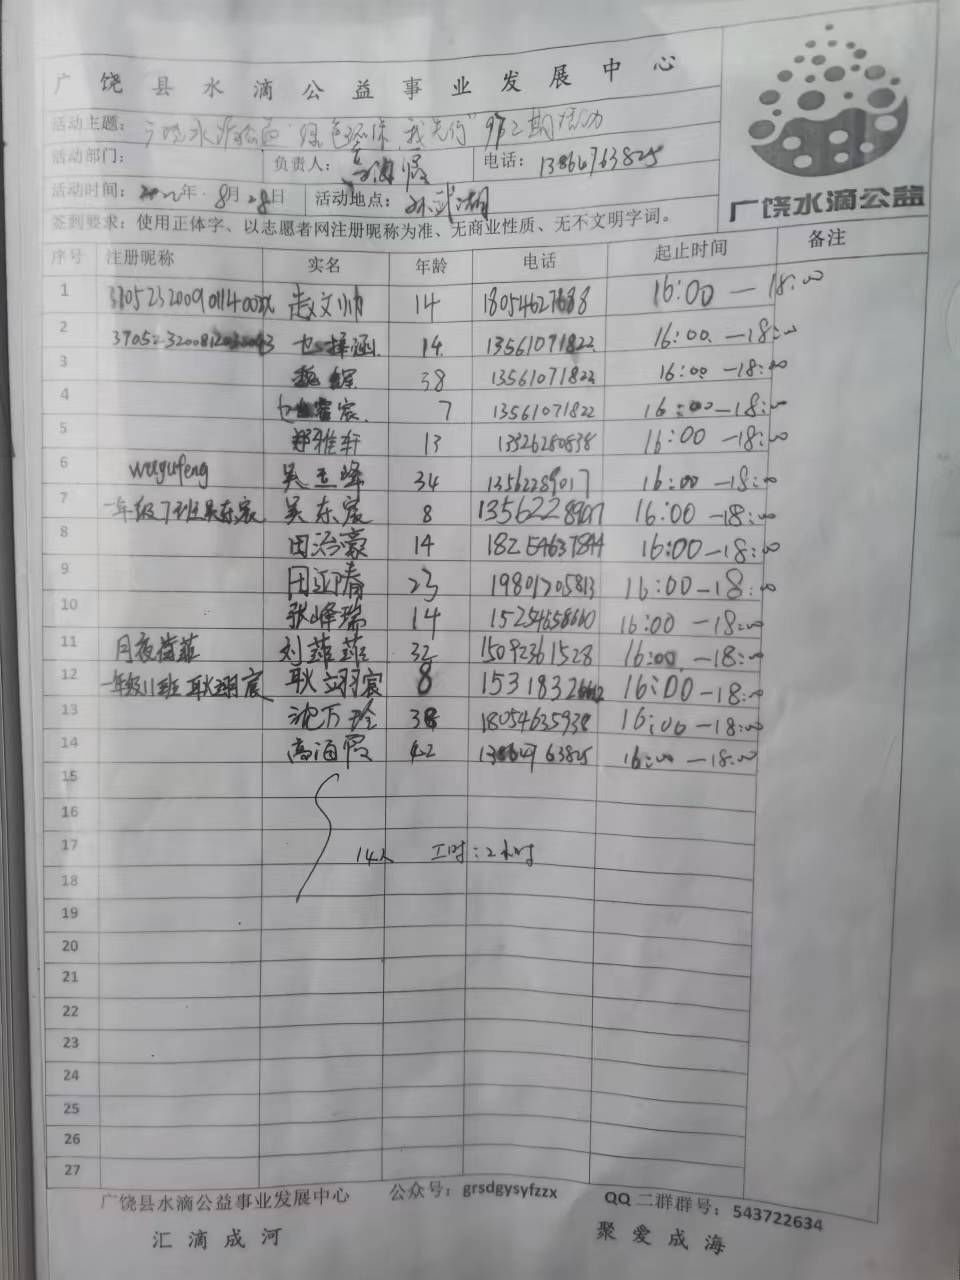 广饶县水滴公益事业发展中心
活动主题：广饶水滴公益"绿色环保，我先行"第2期活动
活动部门： 负责人：高海霞 电话：13864763825
活动时间：2022年·8月28日 活动地点：孙武湖
签到要求：使用正体字、以志愿者网注册昵称为准、无商业性质、无不文明字词。
广饶水滴公益
序号 注册昵称 实名 年龄 电话 起止时间 备注
1 赵文帅 14 18054627688 16:00—18:00
2 14 13561071822 16:00—18:00
3 38 13561071822 16:00—18:00
4 7 13561071822 16:00—18:00
5 郑雅轩 13 16:00—18:00
6 wuyufeng 吴玉峰 34 13562289017 16:00—18:00
7 一年级7班吴东宸 吴东宸 8 16:00—18:00
8 田治濠 14 16:00—18:00
9 田迎春 23 19801205813 16:00—18:00
10 张峰瑞 14 16:00—18:00
11 刘菲菲 32 15092361528 16:00—18:00
12 一年级11班耿翊宸 耿翊宸 8 16:00—18:00
13 沈万玲 38 18054635938 16:00—18:00
14 高海霞 42 13864763825 16:00—18:00
15
16
17 14人 工时：2小时
18
19
20
21
22
23
24
25
26
27
广饶县水滴公益事业发展中心 公众号：grsdgysyfzzx QQ二群群号：543722634
汇滴成河 聚爱成海